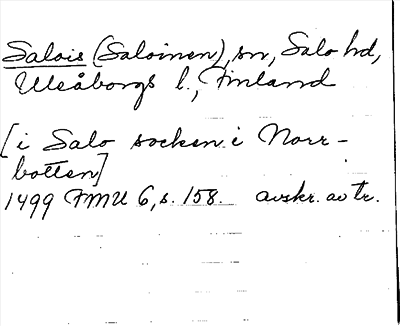 Salois (Saloinen), sn, Salo hd,
Uleåborgs l., Finland
[i Salo socken i Norr-
botten]
1499 FMU 6, s. 158. avskr. av tr.